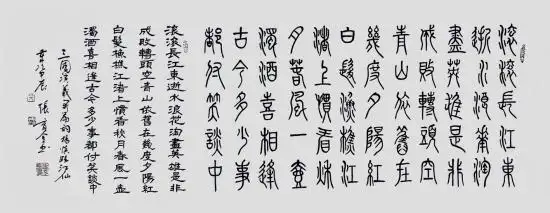 滾滾長江東
逝水浪花淘
盡英雄是非
成敗轉頭空
青山依舊在
幾度夕陽紅
白髮漁樵江
渚上慣看秋
月春風一壺
濁酒喜相逢
古今多少事
都付笑談中
滾滾長江東逝水浪花淘盡英雄是非
成敗轉頭空青山依舊在幾度夕陽紅
白髮漁樵江渚上慣看秋月春風一壺
濁酒喜相逢古今多少事都付笑談中
三國演義開篇詞楊慎臨江仙